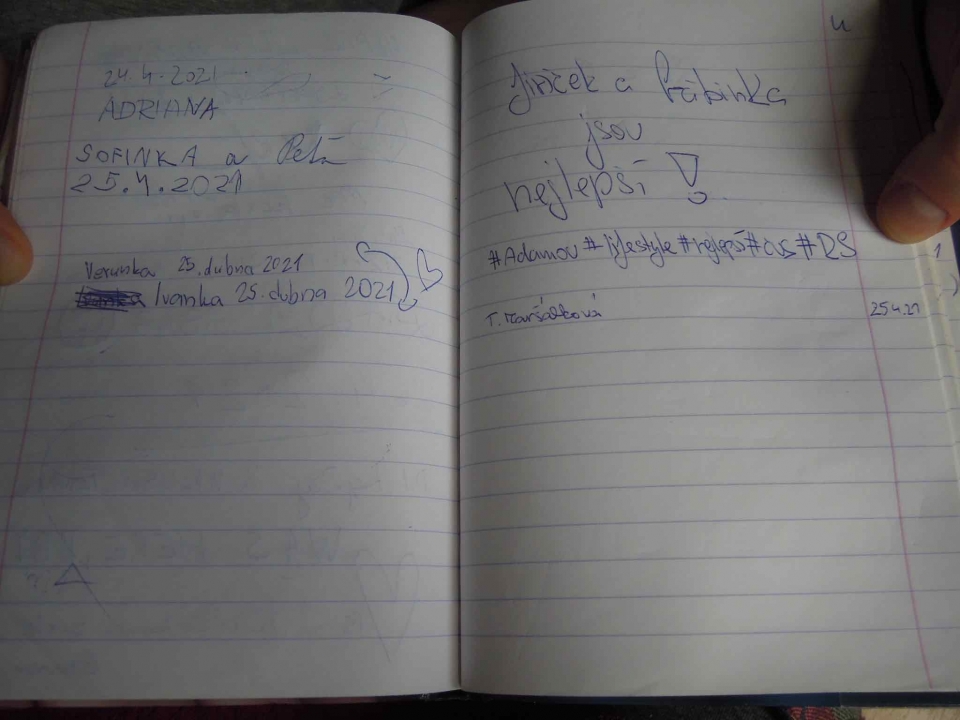 24.4.2021
ADRIANA
SOFINKA a Peťa
25.4.2021
Verunka 25. dubna 2021
Ivanka 25. dubna 2021
Jiříček a
jsou
nejlepší !
#Adamov #lifestyle #nejlepší #cus #RS
T. Maršálková 25.4.21